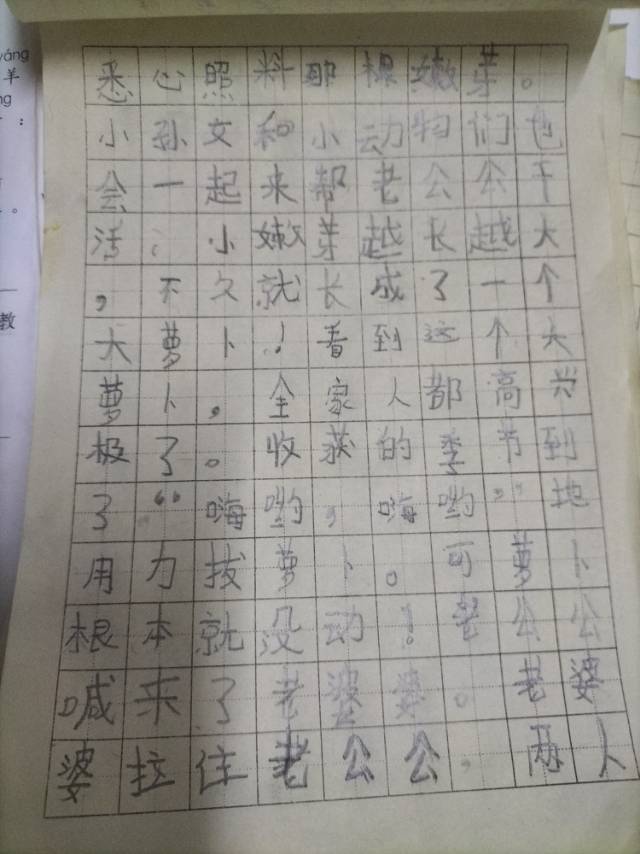 悉心照料那棵嫩芽。
小孙文和小动物们也
会一起来帮老公公干
活；小嫩芽越长越大
，不久就长成了一个
大萝卜！看到这个大
萝卜，全家人都高兴
极了。收获的季节到
了“嗨哟，嗨哟”地
用力拔萝卜。可萝卜
根本就没动！老公公
喊来了老婆婆。老婆
婆拉住老公公，两人
yáng
羊
教